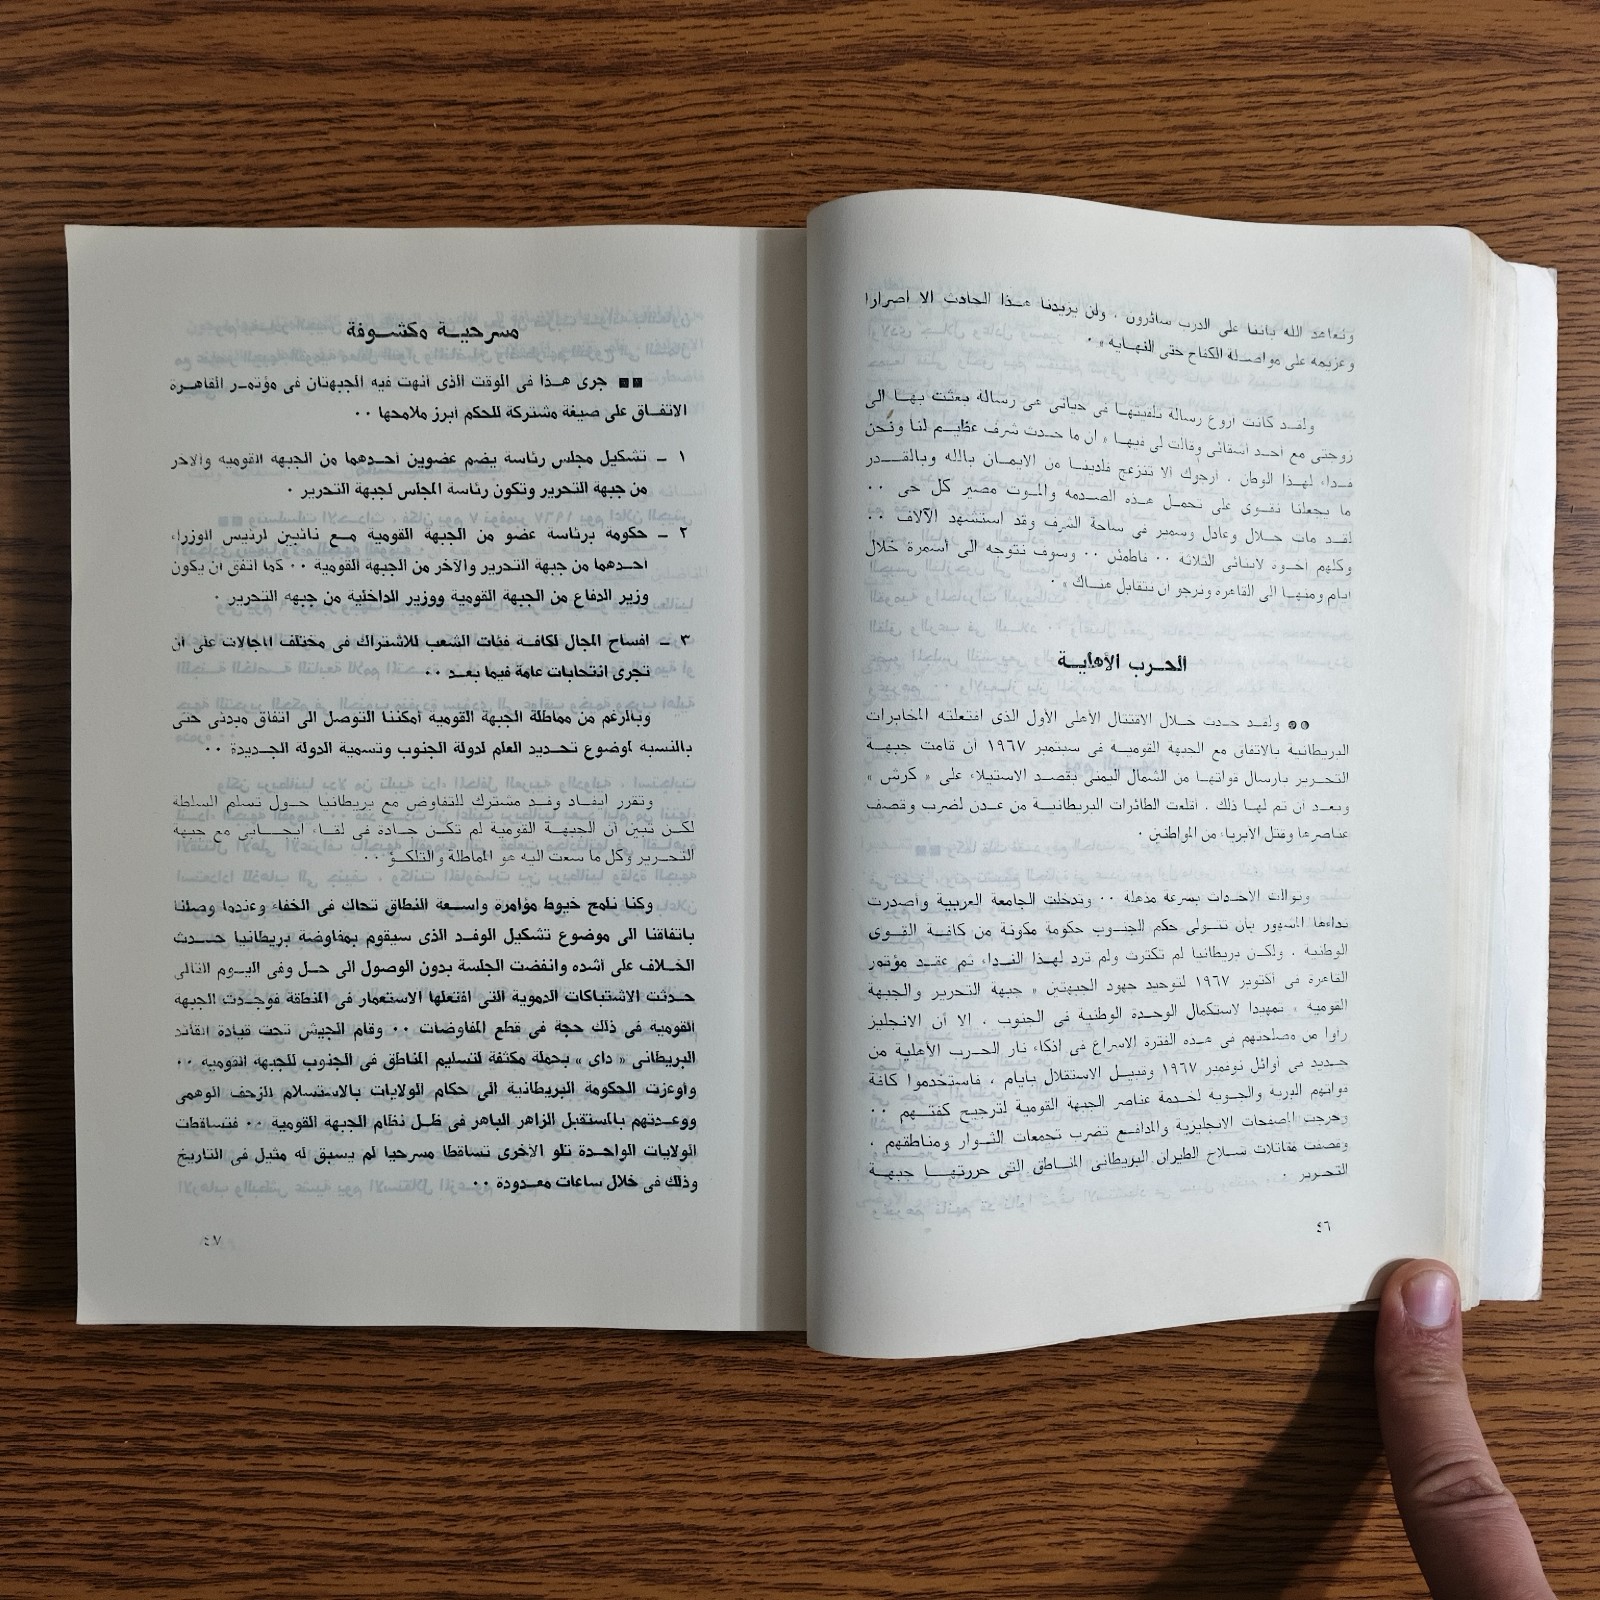 ونعاهد الله باننا على الدرب سائرون . ولن يزيدنا هـذا الحادث الا اصرارا
وعزيمة على مواصـلة الكفاح حتى النهـاية » ٠
ولقـد كانت أروع رسالة تلقيتهـا فى حياتى هى رسالة بعثت بهـا الى
زوجتى مع أحـد أشقائى وقالت لى فيهـا « ان ما حـدث شرف عظيـم لنا ونحن
فـداء لهـذا الوطن . أرجوك ألا تنزعج فلدينـا من الايمـان بالله وبالقـــدر
ما يجعلنا نقـوى على تحمـل هـذه الصـدمة والمـوت مصير كل حى ٠٠
لقـد مات جـلال وعادل وسمير فى ساحة الشرف وقد استشهد الآلاف ٠٠
وكلهم أخـوة لابنائى الثلاثة ٠٠ فاطمئن ٠٠ وسوف نتوجه الى أسمرة خلال
أيام ومنهـا الى القاهرة ونرجو أن نتقابل هنـاك » ٠
الحـرب الأهلـية
●● ولقـد حـدث خـلال الاقتتال الأهلى الأول الذى افتعلته المخابرات
البريطانية بالاتفاق مع الجبهة القوميـة فى سبتمبر ١٩٦٧ أن قامت جبهـة
التحرير بارسال قواتهـا من الشمال اليمنى بقصـد الاستيلاء على « كرش »
وبعـد أن تم لهـا ذلك . أقلعت الطائرات البريطانيـة من عـدن لضرب وقصف
عناصرها وقتل الأبرياء من المواطنين ٠
وتوالت الأحـداث بسرعة مذهلة ٠٠ وتدخلت الجامعة العربية وأصدرت
نداءها المشهور بأن تتـولى حكم الجنـوب حكومة مكونة من كافـة القـوى
الوطنية . ولكـن بريطانيا لم تكترث ولم ترد لهـذا النـداء ثم عقـد مؤتمر
القاهرة فى أكتوبر ١٩٦٧ لتوحيد جهود الجبهتين « جبهة التحرير والجبهة
القومية » تمهيدا لاستكمال الوحدة الوطنية فى الجنوب . الا أن الانجليز
رأوا من مصلحتهم فى هـذه الفترة الاسراع فى اذكاء نار الحـرب الأهلية من
جـديد فى أوائل نوفمبر ١٩٦٧ وقبيـل الاستقلال بأيام ، فاستخدموا كافة
قواتهم البرية والجوية لخـدمة عناصر الجبهة القومية لترجيح كفتـهم ٠٠
وخرجت المصفحات الانجليزية والمدافـع تضرب تجمعات الثـوار ومناطقهم ،
وقصفت مقاتلات سـلاح الطيران البريطانى المنـاطق التى حررتهـا جبهـة
التحـرير ٠
٤٦
مسرحيـة مكشـوفة
■■ جرى هـذا فى الوقت الذى أنهت فيه الجبهتان فى مؤتمـر القاهـرة
الاتفـاق على صيغة مشتركة للحكم أبرز ملامحها ٠٠
١ ـ تشكيل مجلس رئاسة يضم عضوين أحـدهما من الجبهة القومية والآخر
من جبهة التحرير وتكون رئاسة المجلس لجبهة التحرير ٠
٢ ـ حكومة برئاسة عضو من الجبهة القومية مـع نائبين لرئيس الوزراء
أحـدهما من جبهة التحرير والآخر من الجبهة القومية ٠٠ كما اتفق أن يكون
وزير الدفاع من الجبهة القومية ووزير الداخلية من جبهة التحرير ٠
٣ ـ افساح المجال لكافـة فئات الشعب للاشتراك فى مختلف المجالات على أن
تجرى انتخابات عامة فيما بعـد ٠٠
وبالرغم من مماطلة الجبهة القومية أمكننا التوصل الى اتفاق مبدئى حتى
بالنسبة لموضوع تحـديد العلم لدولة الجنوب وتسمية الدولة الجـديدة ٠٠
وتقرر ايفـاد وفـد مشترك للتفاوض مع بريطانيا حـول تسلم السلطة
لكـن تبين أن الجبهـة القوميـة لم تكـن جـادة فى لقـاء ايجـابى مع جبهة
التحـرير وكل ما سعت اليه هو المماطلة والتلكـؤ ٠٠
وكنا نلمح خيوط مؤامرة واسـعة النطاق تحاك فى الخفاء وعندما وصلنا
باتفاقنا الى موضوع تشكيل الوفـد الذى سيقوم بمفاوضة بريطانيا حـدث
الخـلاف على أشده وانفضت الجلسة بدون الوصول الى حـل وفى اليـوم التالى
حـدثت الاشتباكات الدموية التى افتعلها الاستعمار فى المنطقة فوجـدت الجبهة
القومية فى ذلك حجة فى قطع المفاوضات ٠٠ وقام الجيش تحت قيادة القائد
البريطانى « داى » بحملة مكثفة لتسليم المناطق فى الجنوب للجبهة القومية ٠٠
وأوعزت الحكومة البريطانية الى حكام الولايات بالاستسلام للزحف الوهمى
ووعـدتهم بالمستقبل الزاهر الباهر فى ظـل نظام الجبهة القومية ٠٠ فتساقطت
الولايات الواحـدة تلو الأخرى تساقطا مسرحيا لم يسبق له مثيل فى التاريخ
وذلك فى خلال ساعات معـدودة ٠٠
٤٧